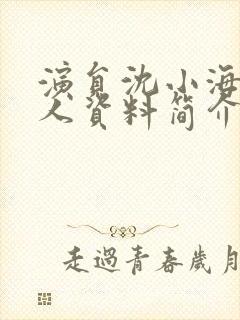 演員沈小海
人資料簡介
走過青春歲月